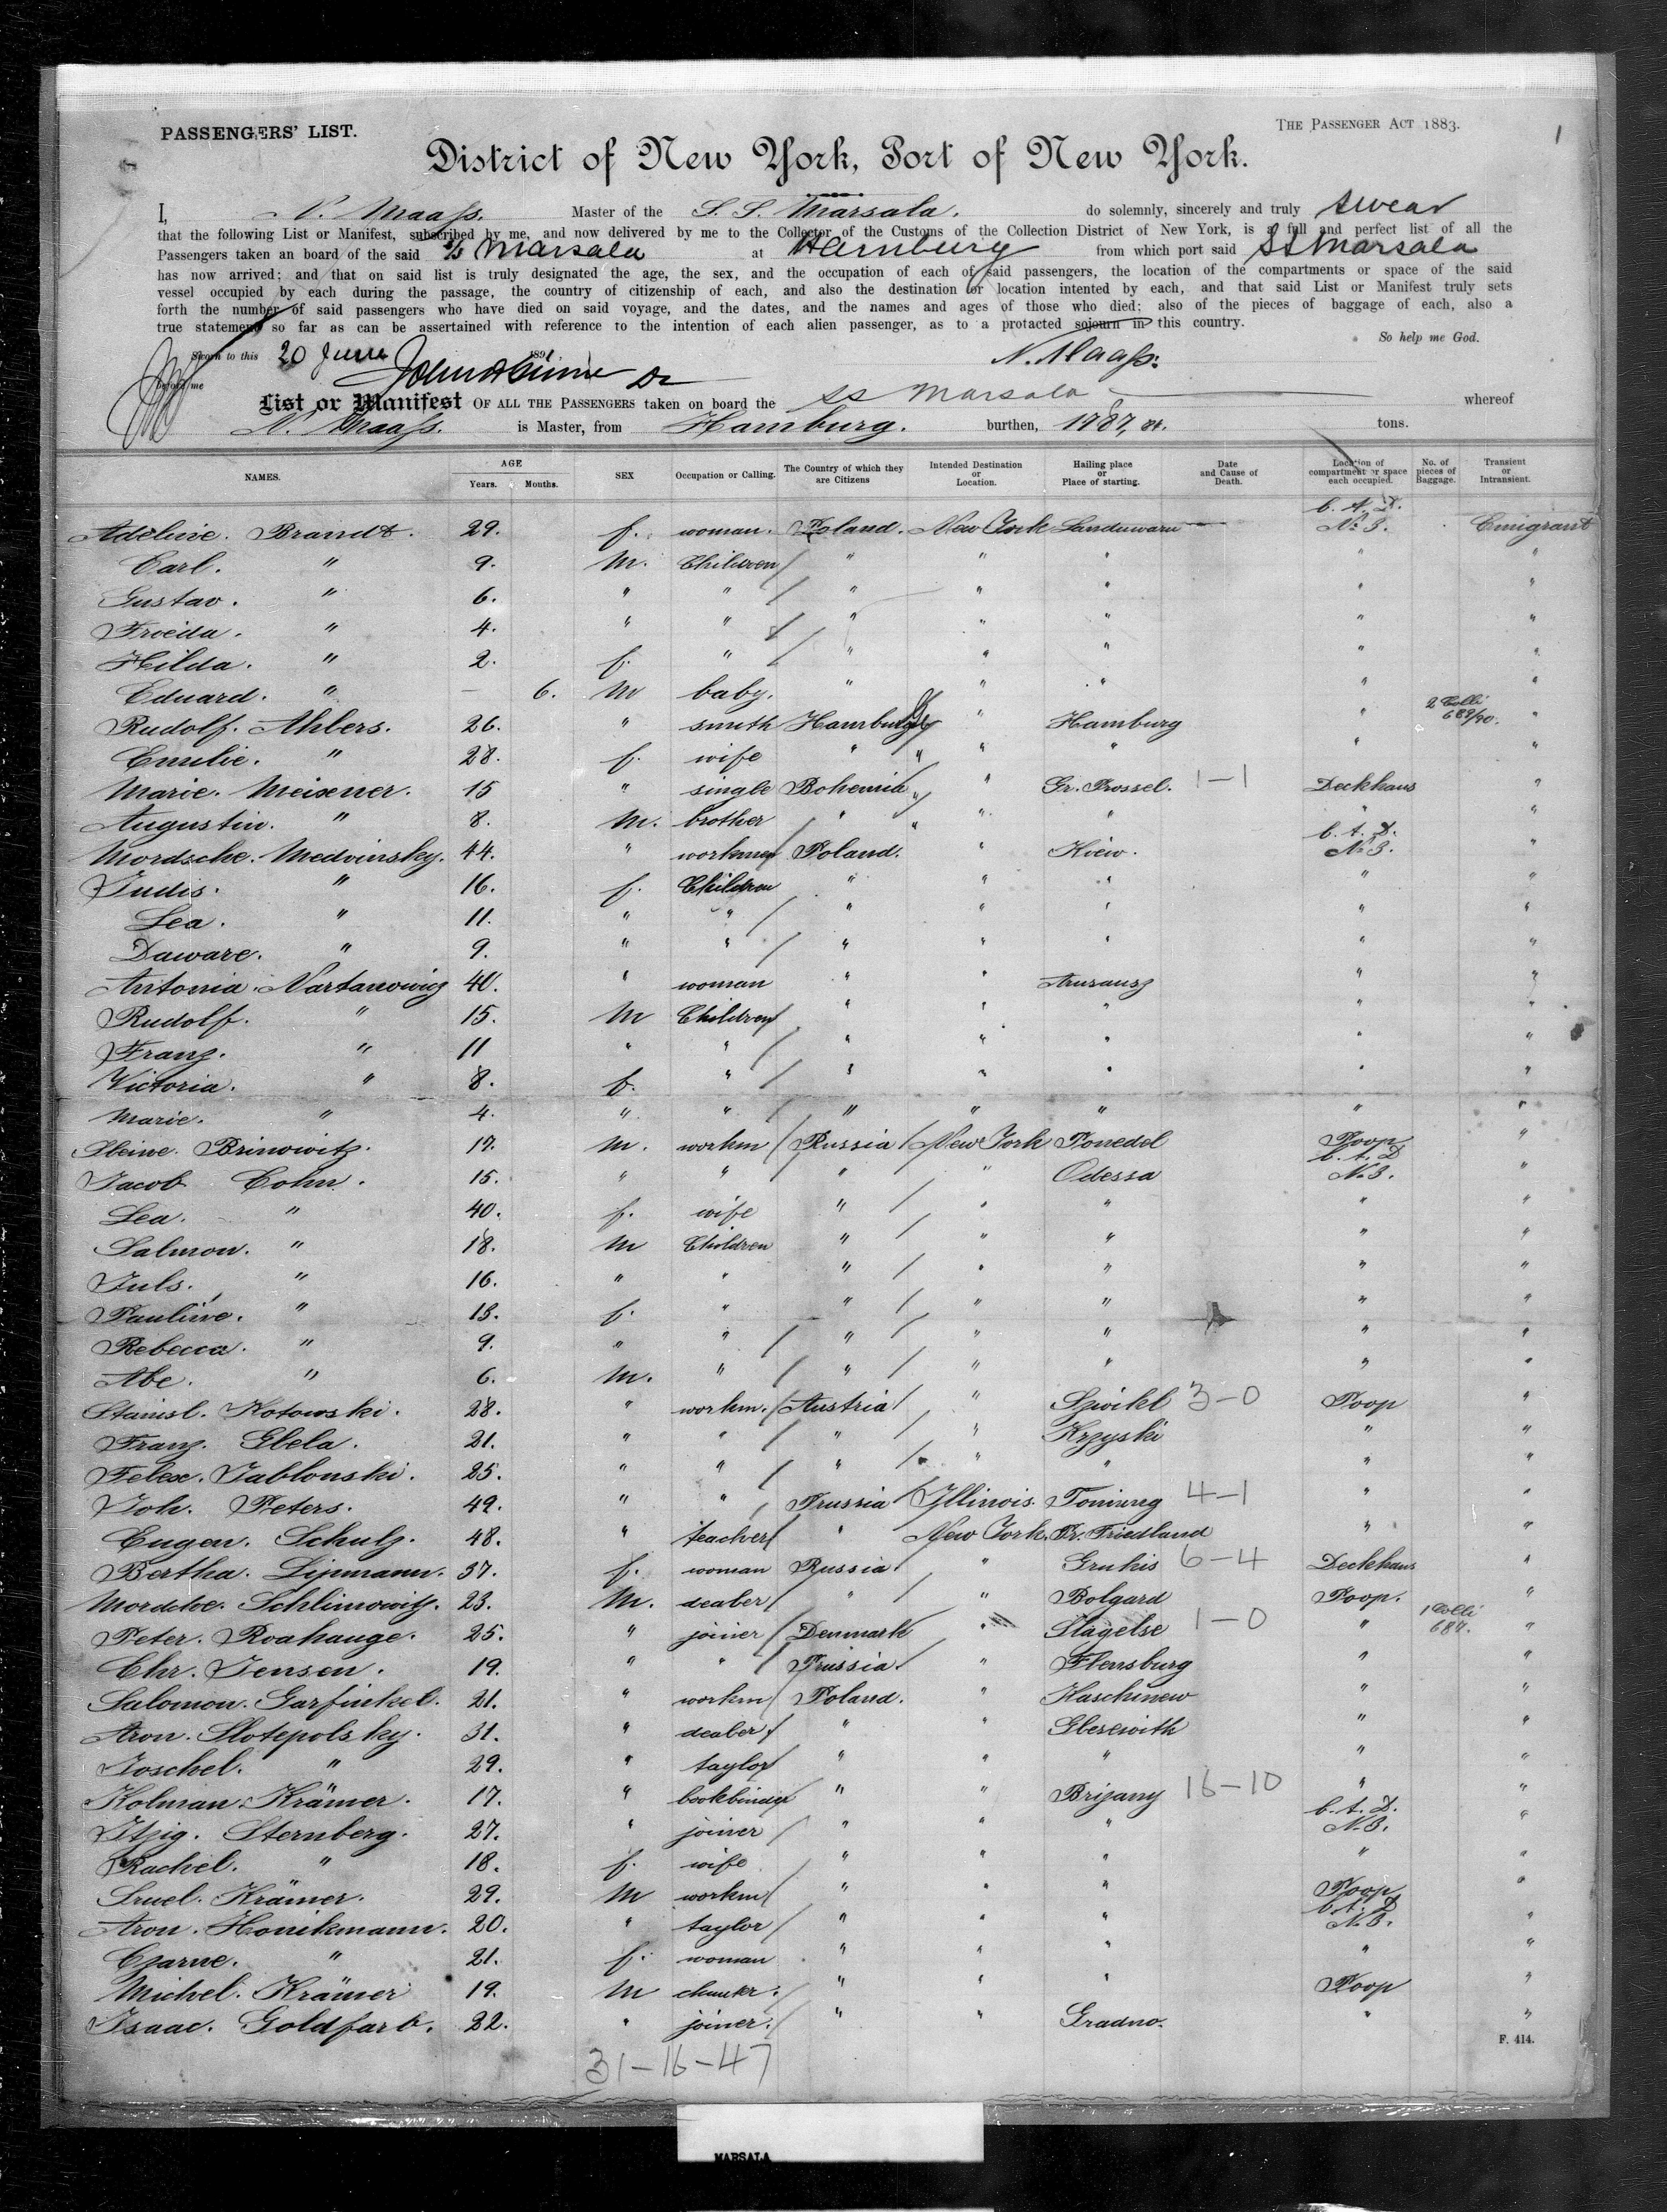 PASSENGERS' LIST.
THE PASSENGER ACT 1883.
1
District of New York, Port of New York.
I, N. Maass. Master of the S. S. Marsala. do solemnly, sincerely and truly swear
that the following List or Manifest, subscribed by me, and now delivered by me to the Collector of the Customs of the Collection District of New York, is a full and perfect list of all the
Passengers taken an board of the said S/S Marsala at Hamburg from which port said SS Marsala
has now arrived; and that on said list is truly designated the age, the sex, and the occupation of each of said passengers, the location of the compartments or space of the said
vessel occupied by each during the passage, the country of citizenship of each, and also the destination or location intented by each, and that said List or Manifest truly sets
forth the number of said passengers who have died on said voyage, and the dates, and the names and ages of those who died; also of the pieces of baggage of each, also a
true statement so far as can be assertained with reference to the intention of each alien passenger, as to a protacted sojourn in this country.
So help me God.
Sworn to this 20 June 1891
N. Maass.
before me
List or Manifest OF ALL THE PASSENGERS taken on board the SS Marsala whereof
N. Maass. is Master, from Hamburg. burthen, 1987, tons.
NAMES. AGE Years. Months. SEX Occupation or Calling. The Country of which they are Citizens Intended Destination or Location. Hailing place or Place of starting. Date and Cause of Death. Location of compartment or space each occupied. No. of pieces of Baggage. Transient or Intransient.
Adeline. Brandt. 29. f. woman. Poland. New York Landuwaru b. A. D. No 3. Emigrant
Earl. " 9. M. Children " " " " "
Gustav. " 6. " " " " " " "
Froeida. " 4. " " " " " " "
Hilda. " 2. f. " " " " " "
Eduard. " — 6. M baby. " " " " "
Rudolf. Ahlers. 26. " smith Hamburg " Hamburg " 2 Colli 689/90. "
Emilie. " 28. f. wife " " " " "
Marie. Meixner. 15 " single Bohemia " Gr. Prossel. 1-1 Deckhaus "
Augustin. " 8. M. brother " " " " "
Mordsche. Medvinsky. 44. " workmen Poland. " Kiew. b. A. D. No 3. "
Judis. " 16. f. Children " " " " "
Lea. " 11. " " " " " " "
Daware. " 9. " " " " " " "
Antonia. Nartanowicz 40. " woman " " Arusausz " "
Rudolf. " 15. M Children " " " " "
Franz. " 11 " " " " " " "
Victoria. " 8. f. " " " " " "
Marie. " 4. " " " " " " "
Sleine. Brinowitz. 17. M. workm Russia New York Ponedel Poop "
Jacob Cohn. 15. " " " " Odessa b. A. D. No 3. "
Lea. " 40. f. wife " " " " "
Salmon. " 18. M Children " " " " "
Juls. " 16. " " " " " " "
Pauline. " 13. f. " " " " " "
Rebecca. " 9. " " " " " " "
Abe. " 6. M. " " " " " "
Stanisl. Kotowski. 28. " workm. Austria " Szwikl 3-0 Poop "
Franz. Gbela. 21. " " " " Krzyski " "
Felex. Jablonski. 25. " " " " " " "
Joh. Peters. 49. " " Prussia Illinois. Toninng 4-1 " "
Eugen. Schulz. 48. " teacher " New York. Pr. Friedland " "
Bertha. Lipmann. 37. f. woman Russia " Gruhis 6-4 Deckhaus "
Mordche. Schlimowitz. 23. M. deaber " " Bolgard Poop. "
Peter. Roahauge. 25. " joiner Denmark " Slagelse 1-0 " 1 Colli 687. "
Chr. Jensen. 19. " " Prussia. " Flensburg " "
Salomon. Garfinkel. 21. " workm Poland. " Kaschinew " "
Aron. Slotepolsky. 31. " deaber " " Gberewith " "
Joschel. " 29. " taylor " " " " "
Kolman. Krämer. 17. " bookbinder " " Brizany 16-10 " "
Itzig. Sternberg. 27. " joiner " " " b. A. D. No 3. "
Rachel. " 18. f. wife " " " " "
Sruel. Krämer. 29. M workm " " " Poop "
Aron. Honikmann. 20. " taylor " " " b. A. D. No 3. "
Czarne. " 21. f. woman " " " " "
Michel. Krämer 19. M " " " Poop "
Isaac. Goldfarb. 22. " joiner. " " Gradno. " "
F. 414.
31-16-47
MARSALA